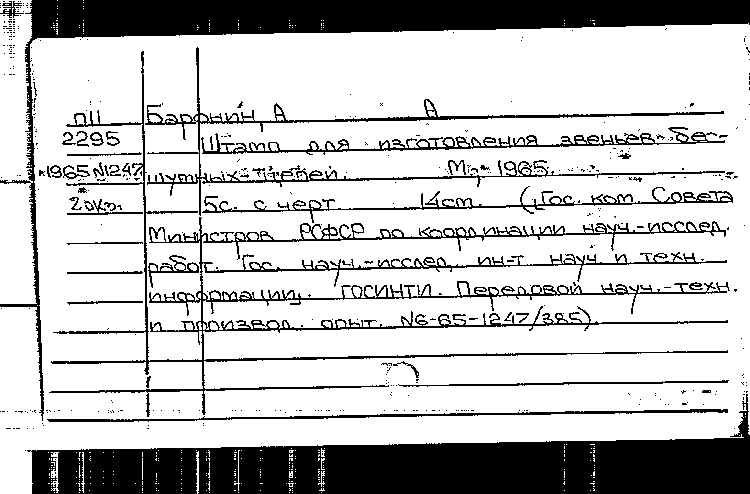 П11 Баронин, А А
2295 Штамп для изготовления звеньев бес-
1965 N1247 шумных цепей. М., 1965.
2 окз. 5с. с черт 14см. (Гос. ком. Совета
Министров РСФСР по координации науч.-исслед.
работ. Гос. науч.-исслед. ин-т науч. и техн.
информации. ГОСИНТИ. Передовой науч.-техн.
и производ. опыт. N6-65-1247/385).